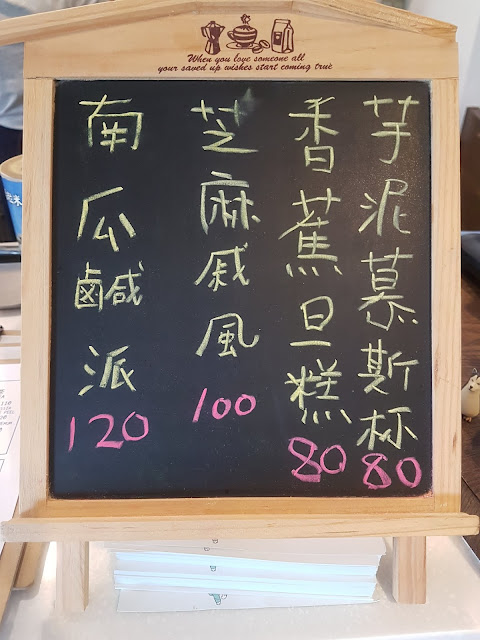 When you love someone all
your saved up wishes start coming true
芋泥慕斯杯 80
香蕉旦糕 80
芝麻戚風 100
南瓜鹹派 120